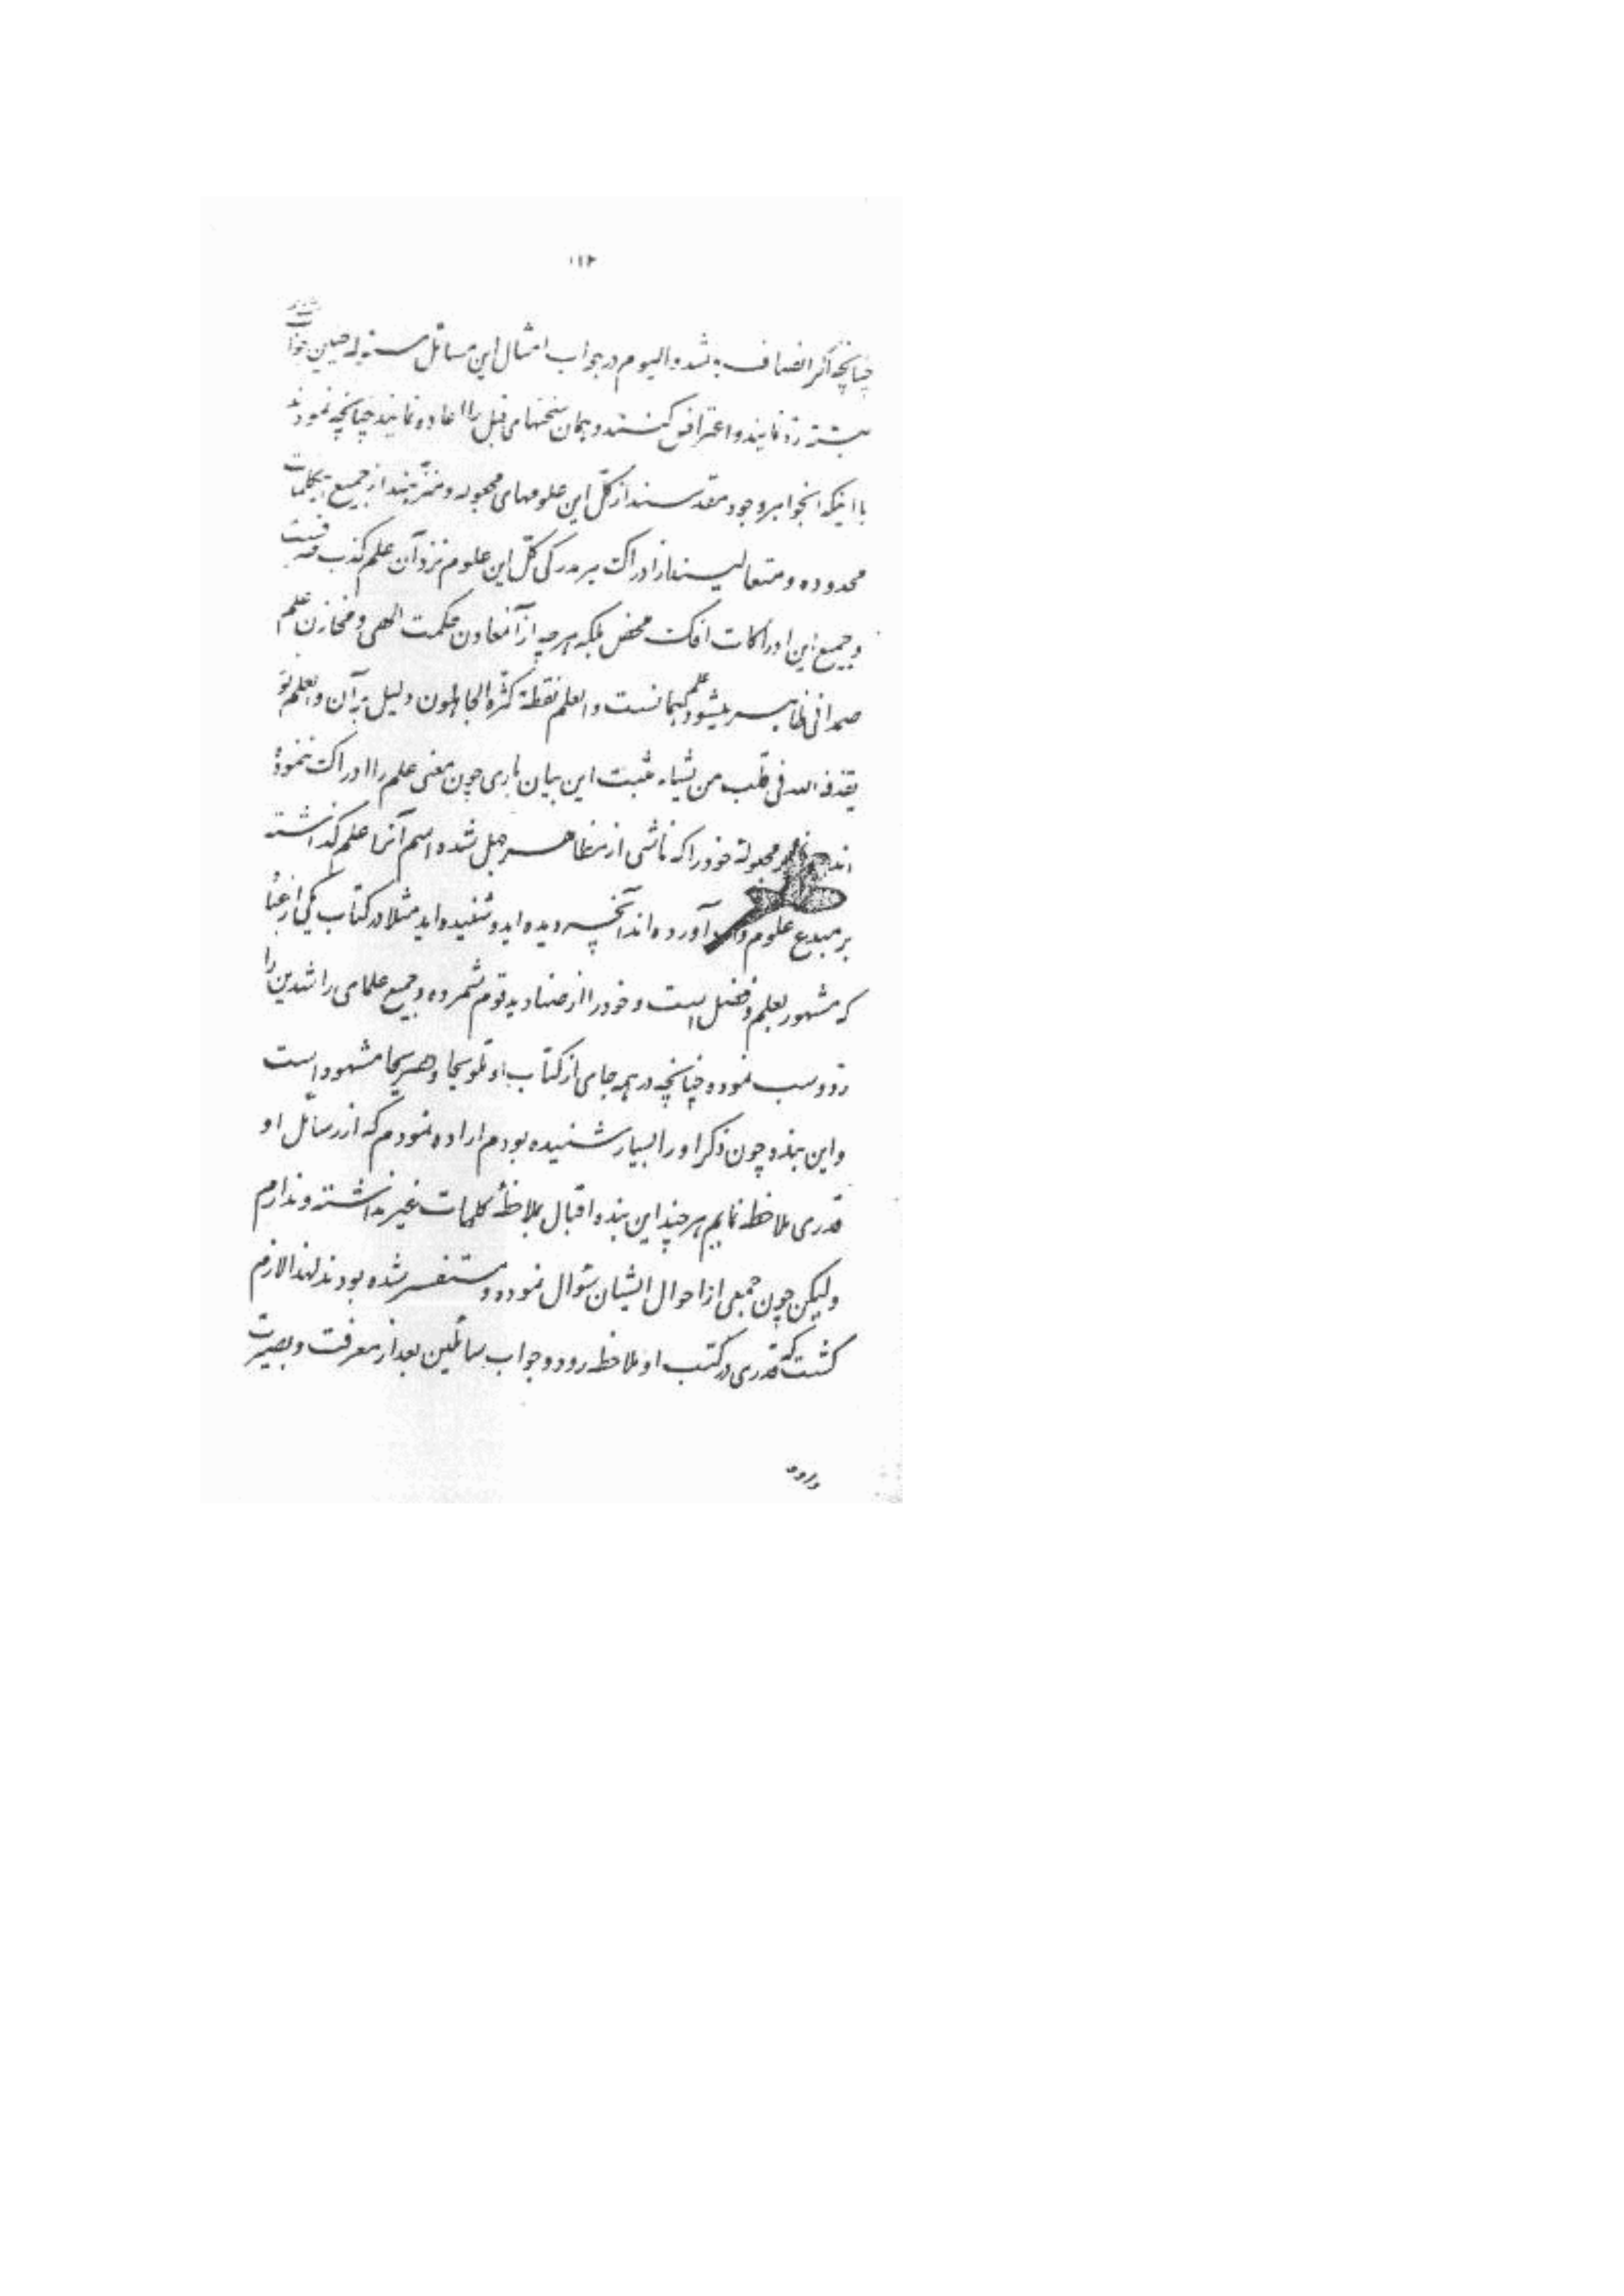 ۱۱۲
چنانچه اکثر انصاف باشد و الیوم در جواب امثال این مسائل
البته رد نمایند و اعتراض کنند و همان سخنهای قبل را اعاده نمایند چنانچه نمودند
با اینکه آنجواهر وجود مقدسند از کل این علومهای مجعوله و منزهند از جمیع این کلمات
محدوده و متعالیند از ادراک هر مدرکی کل این علوم نزد آن علم کذب صرفست
و جمیع این ادراکات افک محض بلکه هرچه از آن معادن حکمت الهی و مخازن علم
صمدانی ظاهر میشود علم همانست و العلم نقطة کثره الجاهلون دلیل بر آن و العلم نور
یقذفه الله فی قلب من یشاء مثبت این بیان باری چون معنی علم را ادراک ننموده
اند مجعولهٔ خود را که ناشی از مظاهر جهل شده اسم آنرا علم گذاشته
بر مبدع علوم وارد آورده‌اند آنچه دیده‌اید و شنیده‌اید مثلا در کتاب یکی از عباد
که مشهور بعلم و فضل است و خود را از صنادید قوم شمرده و جمیع علمای راشدین را
رد و سب نموده چنانچه در همه جای از کتاب او تلویحا و تصریحا مشهود است
و این بنده چون ذکر او را بسیار شنیده بودم اراده نمودم که از رسائل او
قدری ملاحظه نمایم هر چند این بنده اقبال بملاحظهٔ کلمات غیر نداشته و ندارم
ولیکن چون جمعی از احوال ایشان سؤال نموده و مستفسر شده بودند لهذا لازم
گشت که قدری در کتب او ملاحظه رود و جواب سائلین بعد از معرفت و بصیرت